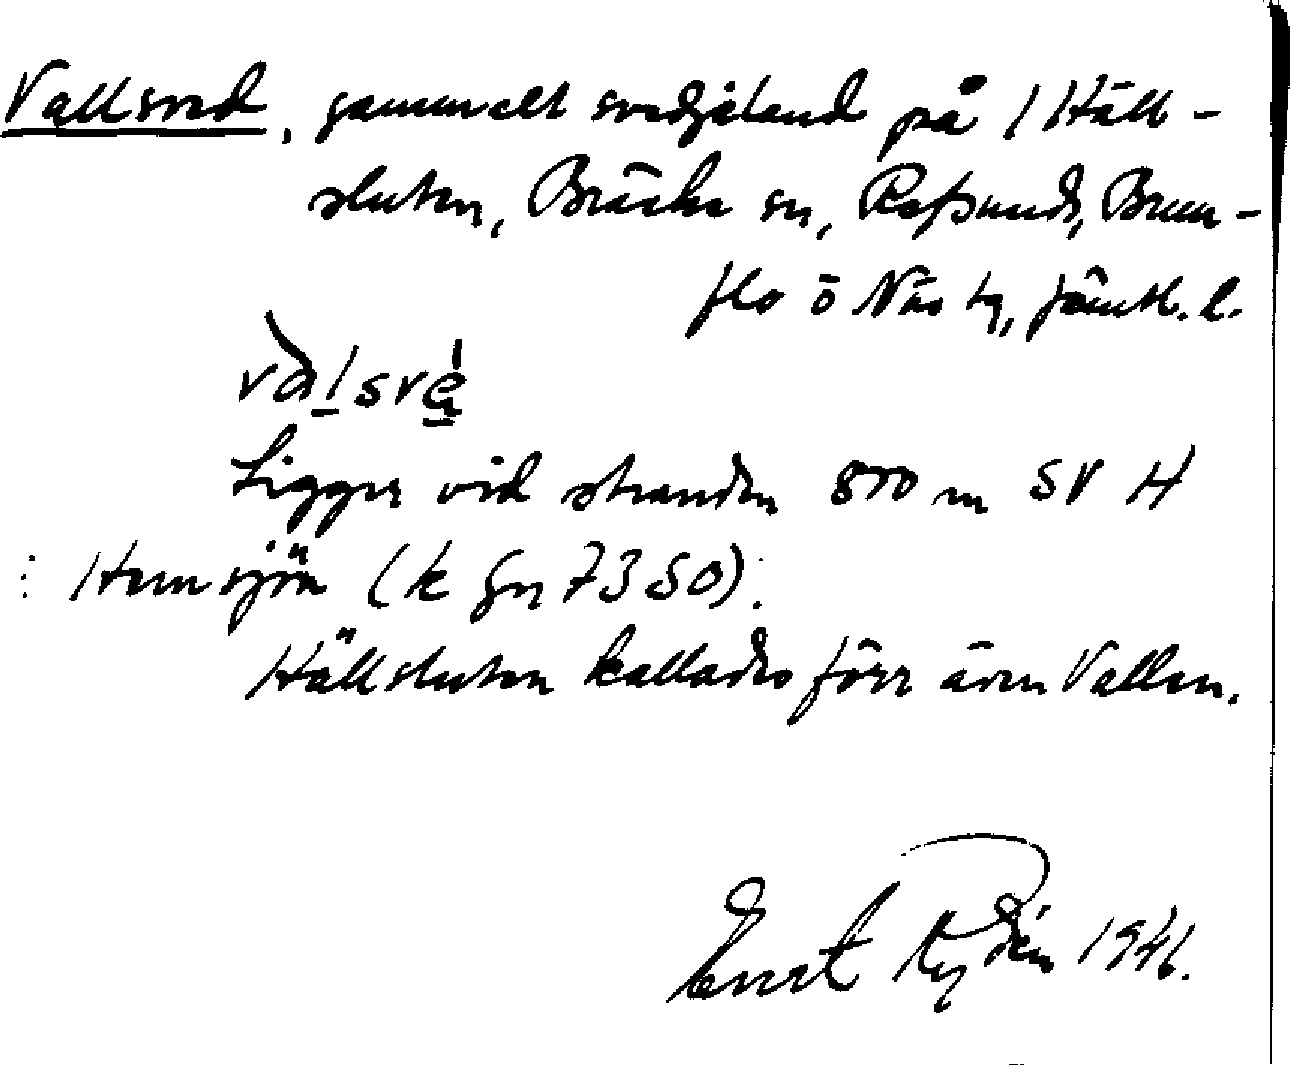 Vallsved, gammalt svedjeland på 1 Häll-
sluten, Bräcke sn, Refsunds, Brun-
flo o Näs tg, Jämtl. l.
val své
Ligger vid stranden 800 m SV H
Hemsjön (k gn 7350).
Hällsluten kallades förr även Vallen.
Ernst Rydén 1946.